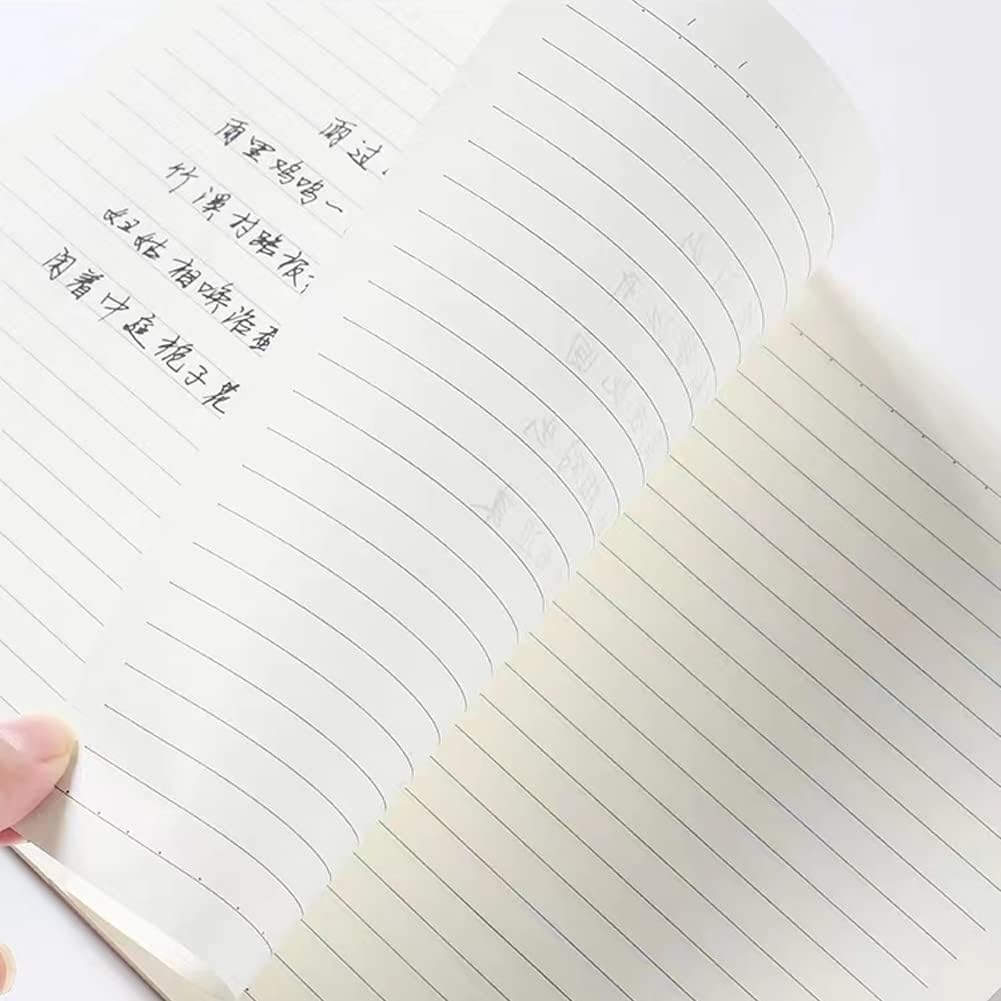 雨过
雨里鸡鸣一
竹溪村路板
妇姑相唤浴蚕
闲着中庭栀子花